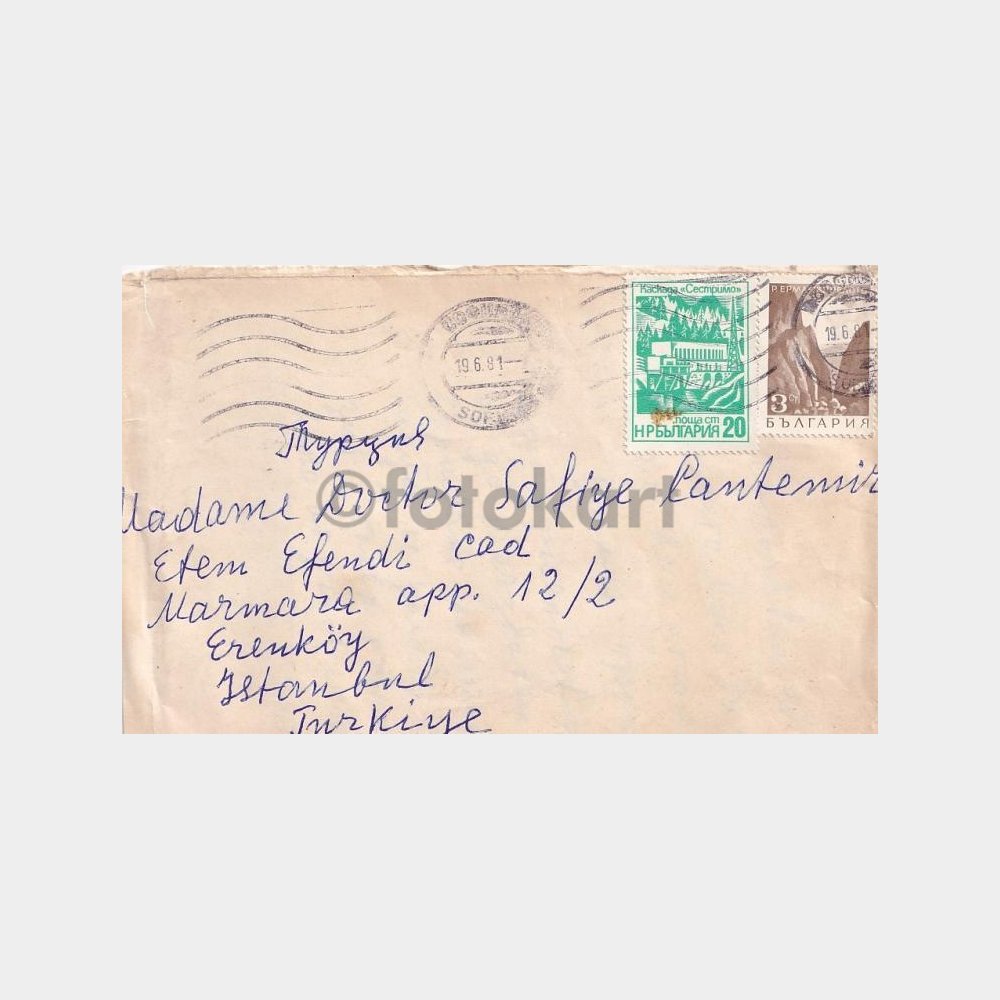 Каскада „Сестримо“
поща ст
НРБЪЛГАРИЯ 20
3 СТ
БЪЛГАРИЯ
19.6.81
19.6.81
Турция
Madame Doctor Safiye Cantemir
Etem Efendi cad
Marmara app. 12/2
Erenköy
Istanbul
Turkiye
©fotokart